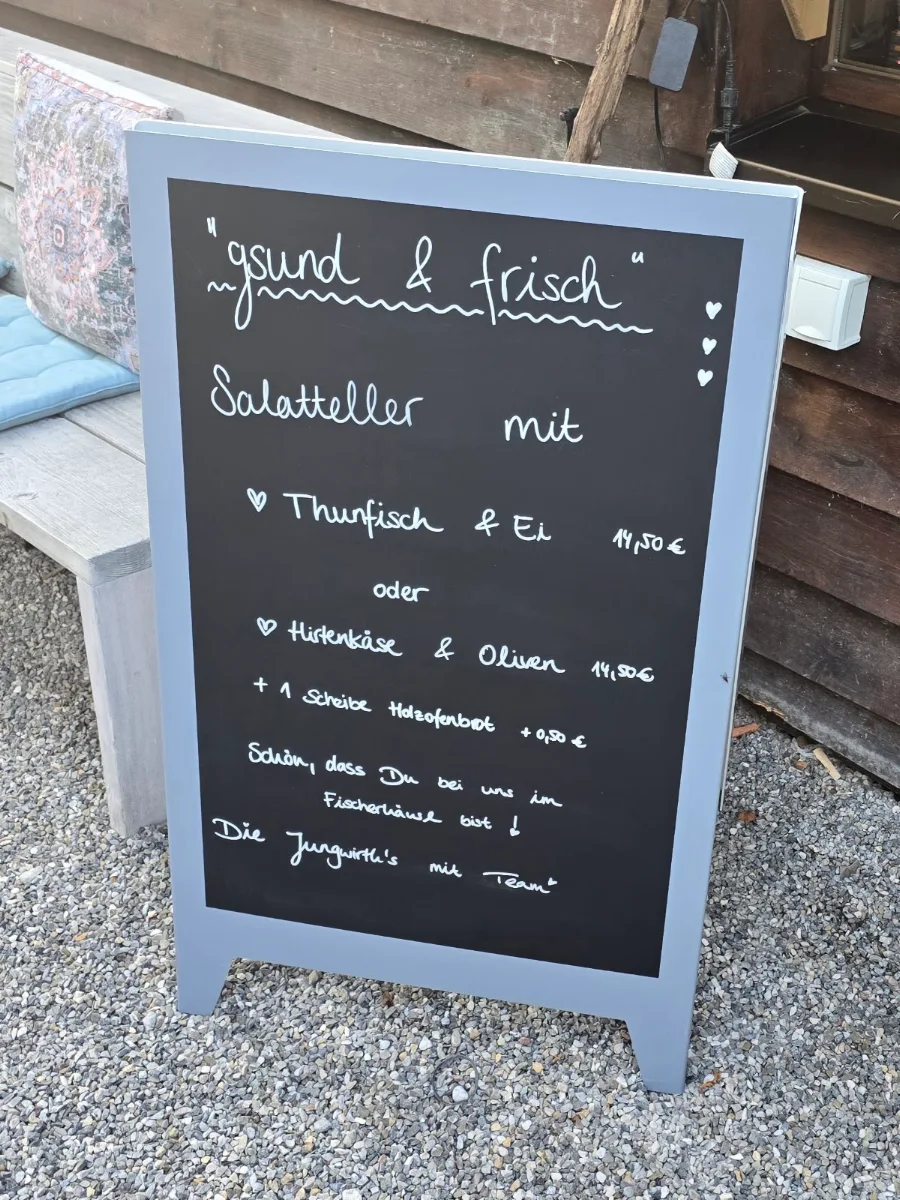 "gsund & frisch"
Salatteller mit
♡ Thunfisch & Ei 14,50 €
oder
♡ Hirtenkäse & Oliven 14,50 €
+ 1 Scheibe Holzofenbrot + 0,50 €
Schön, dass Du bei uns im
Fischerhäusl bist !
Die Jungwirth's mit Team